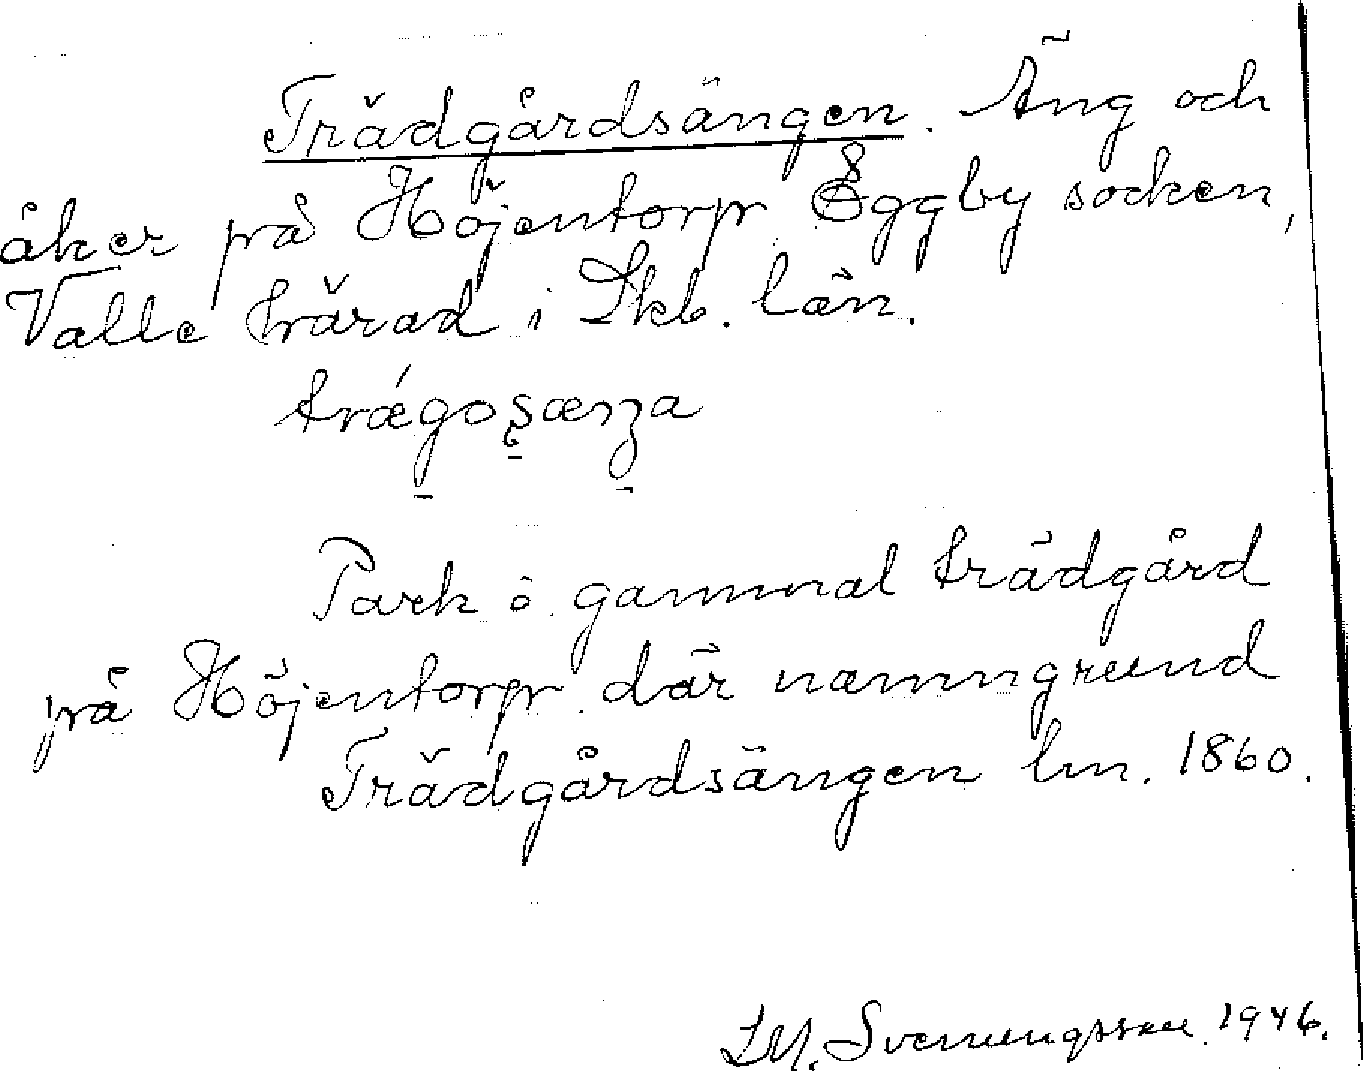 Trädgårdsängen. Äng och
åker på Höjentorp Eggby socken,
Valle härad i Skb. län.
trǽgosæŋa
Park o. gammal trädgård
på Höjentorp. där namngrund
Trädgårdsängen lm. 1860.
Svenungsson 1946.